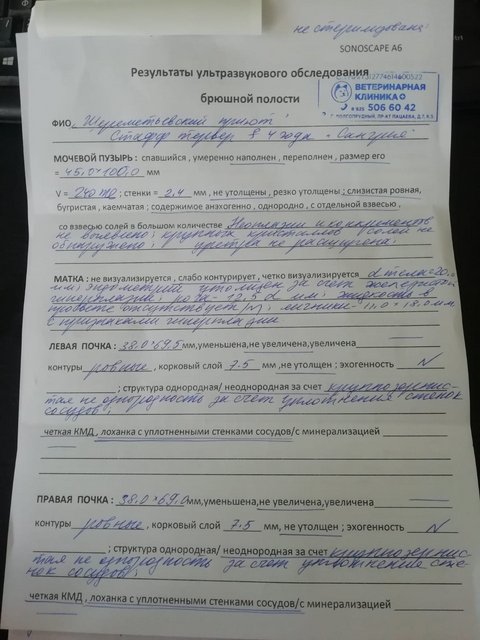 не стерилизована
SONOSCAPE A6
Результаты ультразвукового обследования
брюшной полости
ВЕТЕРИНАРНАЯ
КЛИНИКА
8 925 506 60 42
Г. ДОЛГОПРУДНЫЙ, ПР-КТ ПАЦАЕВА, Д.7, К.3.
ФИО „Шереметьевский приют"
Стафф терьер ♀ 4 года „Сангрия"
МОЧЕВОЙ ПУЗЫРЬ: спавшийся, умеренно наполнен, переполнен, размер его
= 45.0×100.0 мм
V = 240 ml ; стенки = 2,4 мм, не утолщены, резко утолщены; слизистая ровная,
бугристая, каемчатая; содержимое анэхогенно, однородно, с отдельной взвесью,
со взвесью солей в большом количестве Неоплазии и конкрементов
не выявлено; крупных кристаллов солей не
обнаружено; уретра не расширена;
МАТКА: не визуализируется, слабо контурирует, четко визуализируется d тела=20.
мм; эндометрий утолщен за счет железистой
гиперплазии; рога - 12.5 d мм; жидкость в
полости отсутствует; яичники 11.0×18.0мм
с признаками гиперплазии
ЛЕВАЯ ПОЧКА: 38.0×69.5 мм, уменьшена, не увеличена, увеличена
контуры ровные, корковый слой 7.5 мм, не утолщен; эхогенность N
; структура однородная/ неоднородная за счет крупнозернис-
тая не однородность за счет уплотнения стенок
сосудов;
четкая КМД, лоханка с уплотненными стенками сосудов/с минерализацией
ПРАВАЯ ПОЧКА: 38.0×69.0 мм, уменьшена, не увеличена, увеличена
контуры ровные, корковый слой 7.5 мм, не утолщен; эхогенность N
; структура однородная/ неоднородная за счет крупнозернис-
тая не однородность за счет уплотнения сте-
нок сосудов;
четкая КМД, лоханка с уплотненными стенками сосудов/с минерализацией